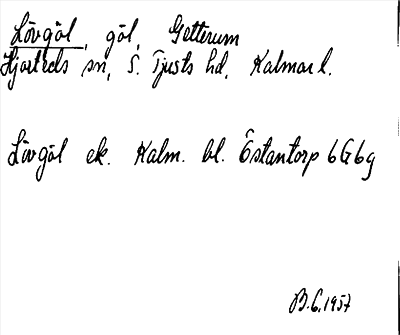 Lövgöl, göl, Getterum
Hjorteds sn, S. Tjusts hd, Kalmar l.
Lövgöl ek. Kalm. bl. Östantorp 6G6g
B.G.1957